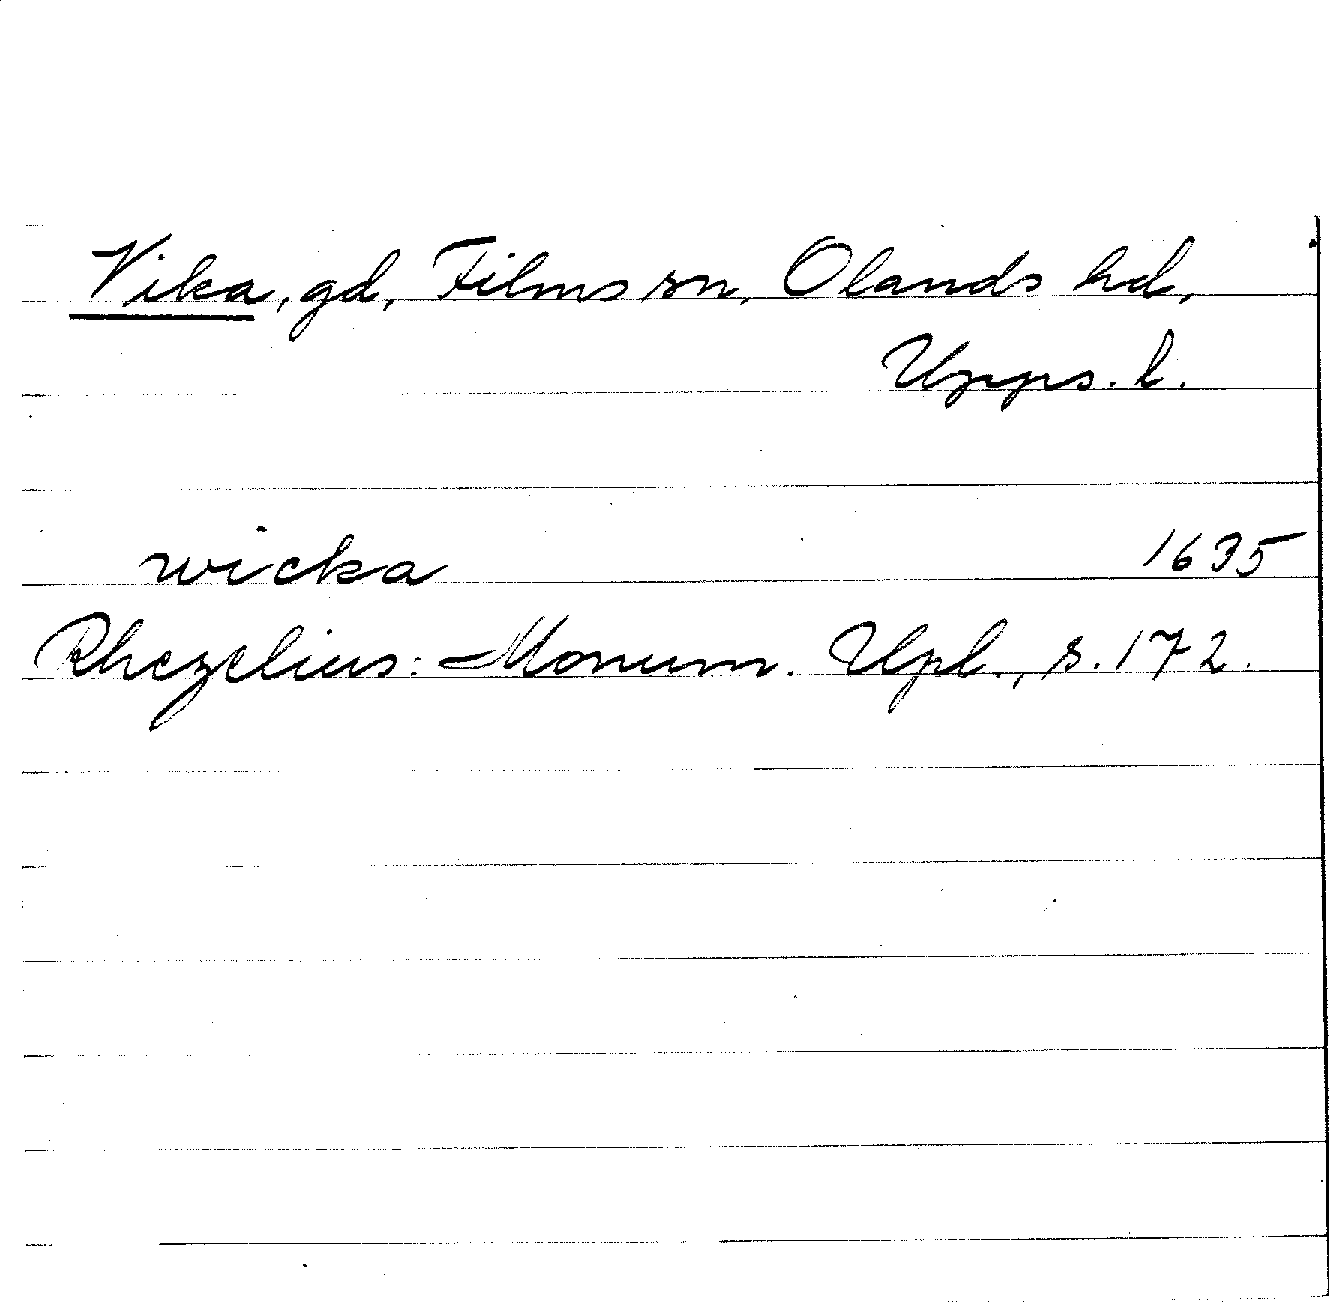 Vika, gd, Films sn, Olands hd,
Upps. l.
wicka 1635
Rhezelius: Monum. Upl., s. 172.